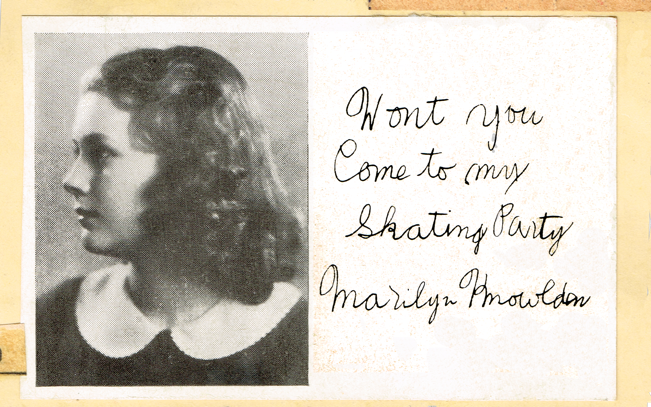 Wont you
Come to my
Skating Party
Marilyn Knowlden